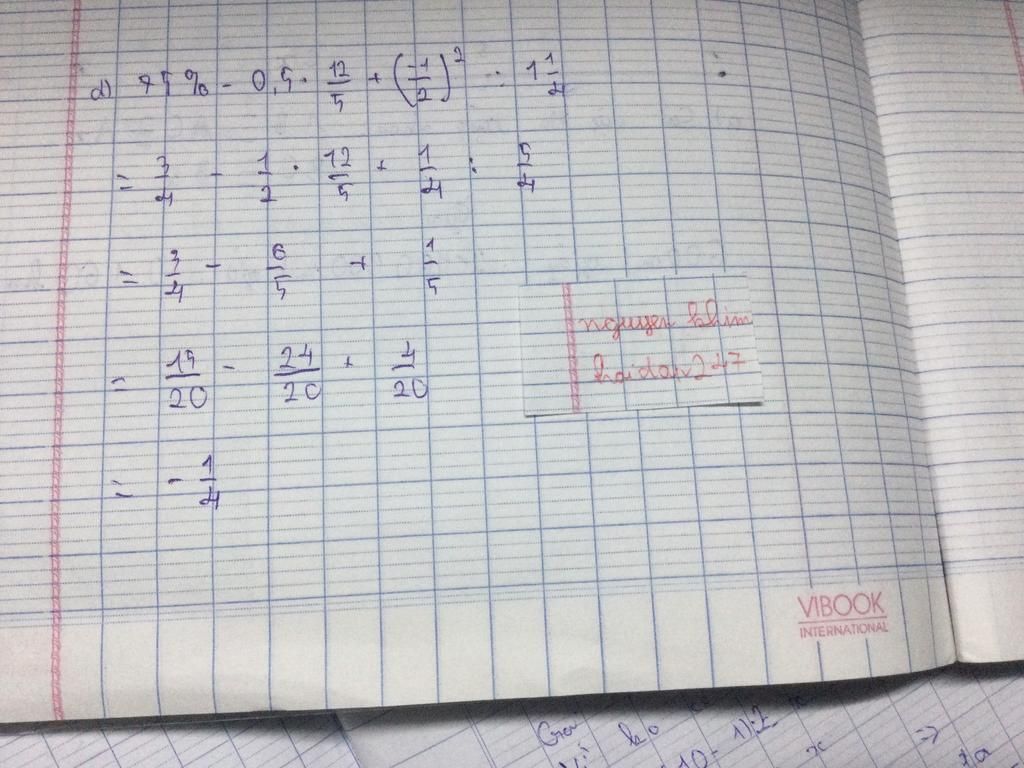 d) 75% - 0,5 . 12/5 + (-1/2)² : 1 1/4
= 3/4 - 1/2 . 12/5 + 1/4 : 5/4
= 3/4 - 6/5 + 1/5
= 15/20 - 24/20 + 4/20
= - 1/4
nguyen khim
hoidap247
VIBOOK
INTERNATIONAL
10 - 1):2
=>